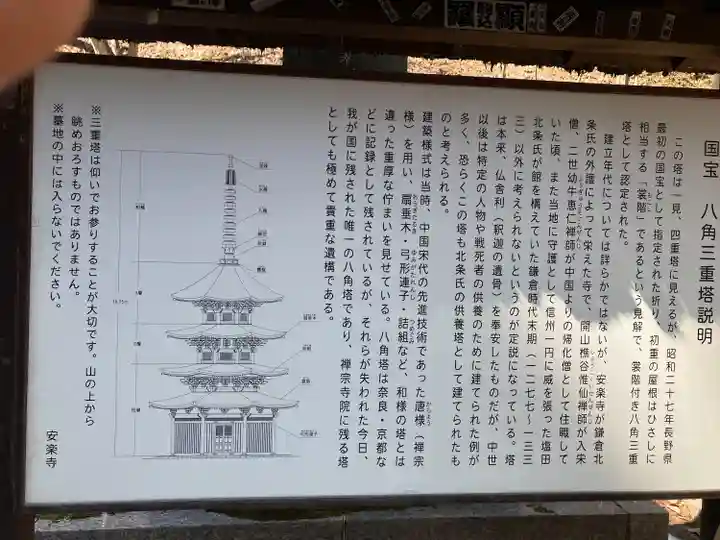 国宝 八角三重塔説明
この塔は一見、四重塔に見えるが、昭和二十七年長野県
最初の国宝として指定された折り、初重の屋根はひさしに
相当する「裳階」であるという見解で、裳階付き八角三重
塔として認定された。
建立年代については詳らかではないが、安楽寺が鎌倉北
条氏の外護によって栄えた寺で、開山樵谷惟仙禅師が入宋
僧、二世幼牛恵仁禅師が中国よりの帰化僧として住職して
いた頃、また当地に守護として信州一円に威を張った塩田
北条氏が館を構えていた鎌倉時代末期(一二七七〜一三三
三)以外に考えられないというのが定説になっている。塔
は本来、仏舎利(釈迦の遺骨)を奉安したものだが、中世
以後は特定の人物や戦死者の供養のために建てられた例が
多く、恐らくこの塔も北条氏の供養塔として建てられたも
のと考えられる。
建築様式は当時、中国宋代の先進技術であった唐様(禅宗
様)を用い、扇垂木・弓形連子・詰組など、和様の塔とは
違った重厚な佇まいを見せている。八角塔は奈良・京都な
どに記録として残されているが、それらが失われた今日、
我が国に残された唯一の八角塔であり、禅宗寺院に残る塔
としても極めて貴重な遺構である。
※三重塔は仰いでお参りすることが大切です。山の上から
眺めおろすものではありません。
※墓地の中には入らないでください。
安楽寺